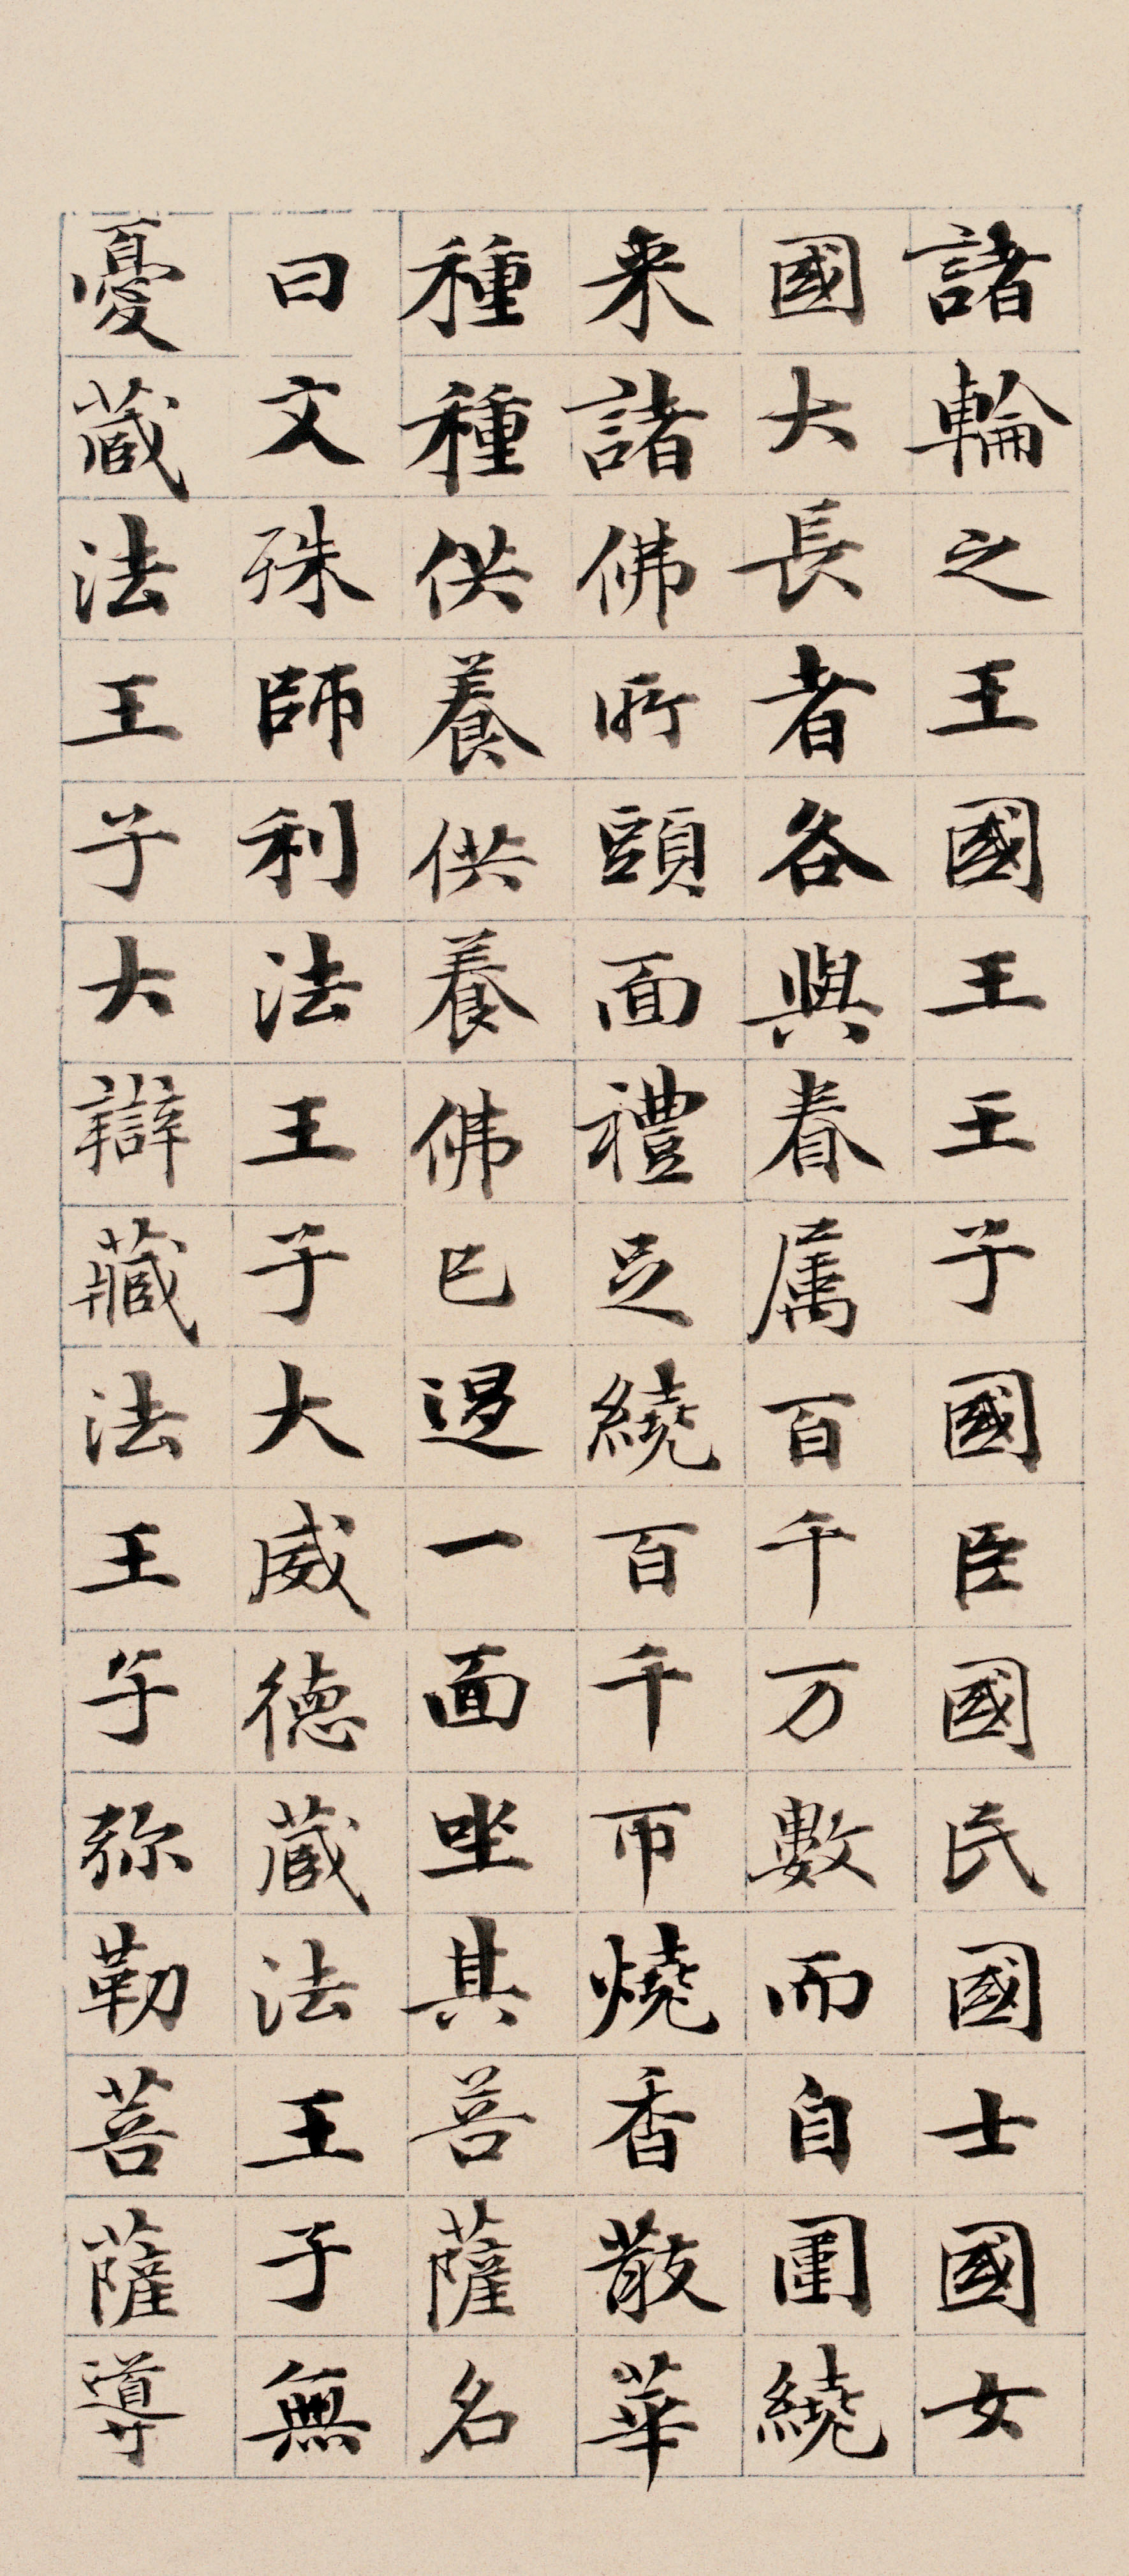 諸輪之王國王王子國臣國民國士國女
國大長者各與眷属百千万數而自圍繞
来諸佛所頭面禮足繞百千帀燒香散華
種種供養供養佛已退一面坐其菩薩名
曰文殊師利法王子大威德蔵法王子無
憂蔵法王子大辯藏法王子弥勒菩薩導